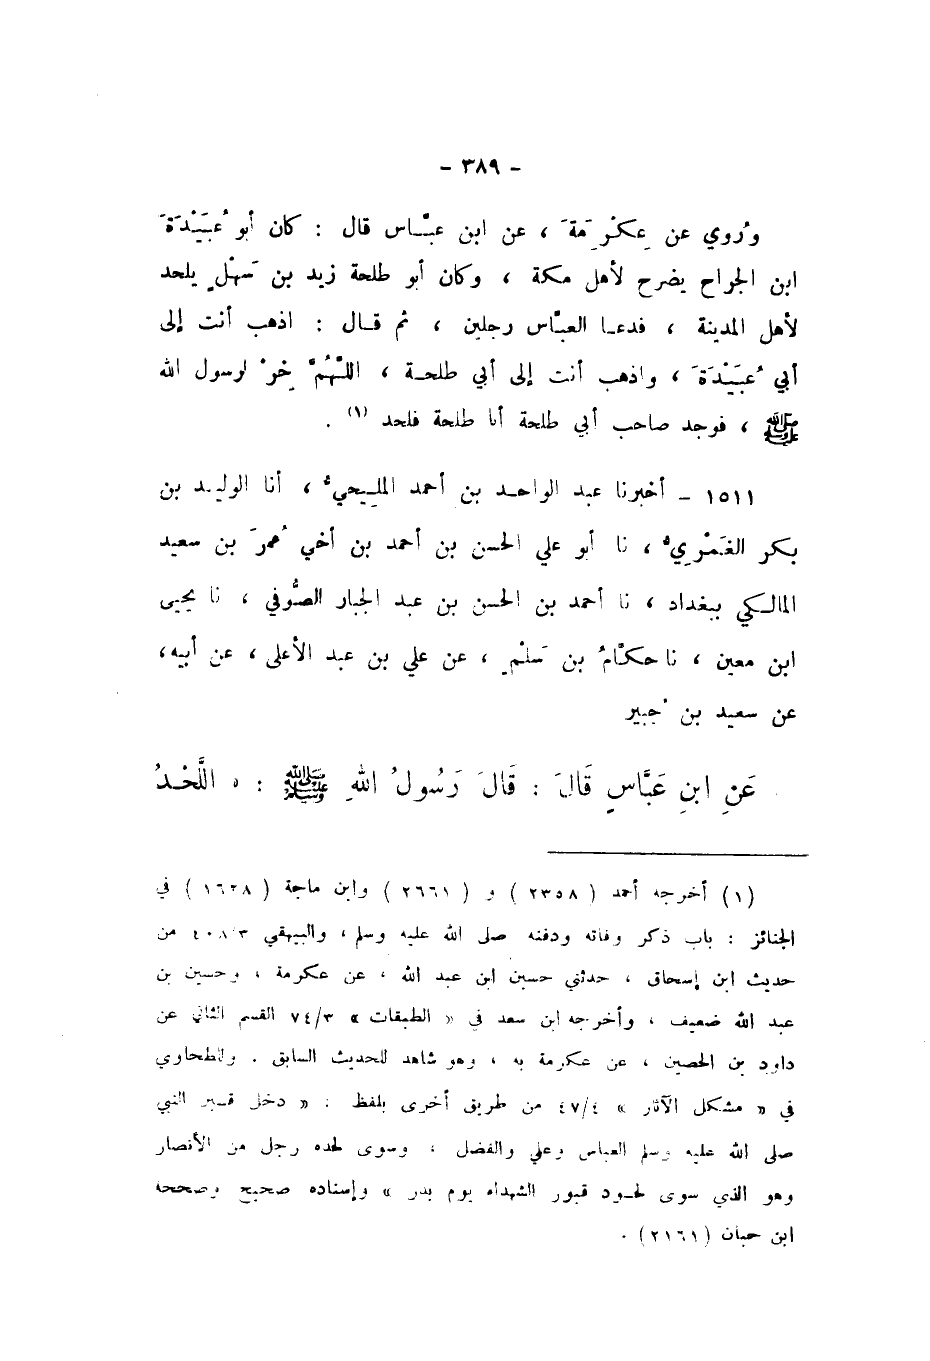 - ٣٨٩ -
ورُوي عن عِكْرِمَةَ ، عن ابن عبَّاس قال : كان أبو عُبَيْدَةَ
ابن الجراح يضرح لأهل مكة ، وكان أبو طلحة زيد بن سَهْلٍ يلحد
لأهل المدينة ، فدعا العبَّاس رجلين ، ثم قال : اذهب أنت إلى
أبي عُبَيْدَةَ ، واذهب أنت إلى أبي طلحة ، اللَّهُمَّ خِرْ لرسول الله
ﷺ ، فوجد صاحب أبي طلحة أبا طلحة فلحد (١) .
١٥١١ - أخبرنا عبد الواحد بن أحمد المليحيُّ ، أنا الوليد بن
بكر الغَمْرِيُّ ، نا أبو علي الحسن بن أحمد بن أخي عُمَرَ بن سعيد
المالكي ببغداد ، نا أحمد بن الحسن بن عبد الجبار الصُّوفي ، نا يحيى
ابن معين ، نا حكَّامُ بن سَلْمٍ ، عن علي بن عبد الأعلى ، عن أبيه ،
عن سعيد بن جُبير
عَنِ ابنِ عَبَّاسٍ قَالَ : قَالَ رَسُولُ اللهِ ﷺ : « اللَّحْدُ
(١) أخرجه أحمد ( ٢٣٥٨ ) و ( ٢٦٦١ ) وابن ماجة ( ١٦٢٨ ) في
الجنائز : باب ذكر وفاته ودفنه صلى الله عليه وسلم ، والبيهقي ٤٠٨/٣ من
حديث ابن إسحاق ، حدثني حسين ابن عبد الله ، عن عكرمة ، وحسين بن
عبد الله ضعيف ، وأخرجه ابن سعد في « الطبقات » ٧٤/٣ القسم الثاني عن
داود بن الحصين ، عن عكرمة به ، وهو شاهد للحديث السابق . وللطحاوي
في « مشكل الآثار » ٤٧/٤ من طريق أخرى بلفظ : « دخل قبر النبي
صلى الله عليه وسلم العباس وعلي والفضل ، وسوى لحده رجل من الأنصار
وهو الذي سوى لحود قبور الشهداء يوم بدر » وإسناده صحيح وصححه
ابن حبان (٢١٦١) .